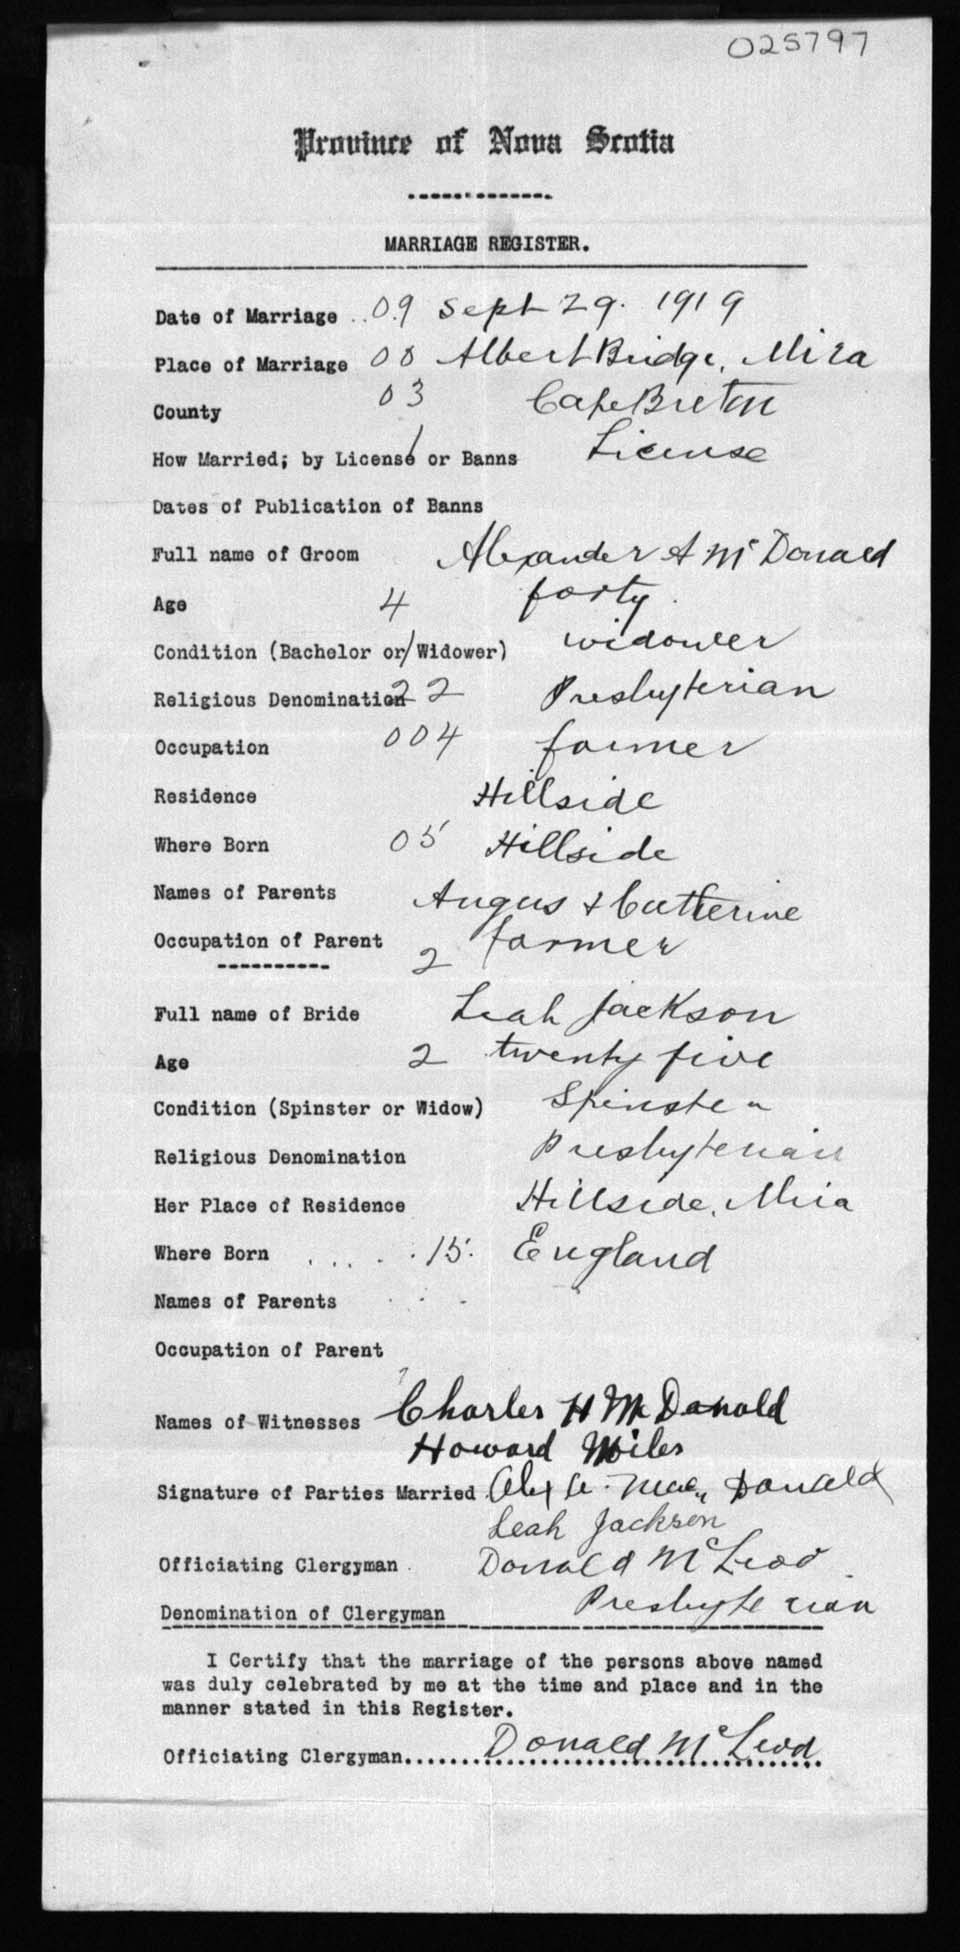 025797
Province of Nova Scotia
MARRIAGE REGISTER.
Date of Marriage 09 Sept 29. 1919
Place of Marriage 00 Albert Bridge, Mira
County 03 Cape Breton
How Married; by License or Banns License
Dates of Publication of Banns
Full name of Groom Alexander A McDonald
Age 4 forty
Condition (Bachelor or Widower) widower
Religious Denomination 22 Presbyterian
Occupation 004 farmer
Residence Hillside
Where Born 05 Hillside
Names of Parents Angus & Catherine
Occupation of Parent 2 farmer
Full name of Bride Leah Jackson
Age 2 twenty five
Condition (Spinster or Widow) Spinster
Religious Denomination Presbyterian
Her Place of Residence Hillside, Mira
Where Born 15. England
Names of Parents
Occupation of Parent
Names of Witnesses Charles H McDonald
Howard Miles
Signature of Parties Married Alex A. MacDonald
Leah Jackson
Officiating Clergyman Donald McLeod
Denomination of Clergyman Presbyterian
I Certify that the marriage of the persons above named
was duly celebrated by me at the time and place and in the
manner stated in this Register.
Officiating Clergyman Donald McLeod